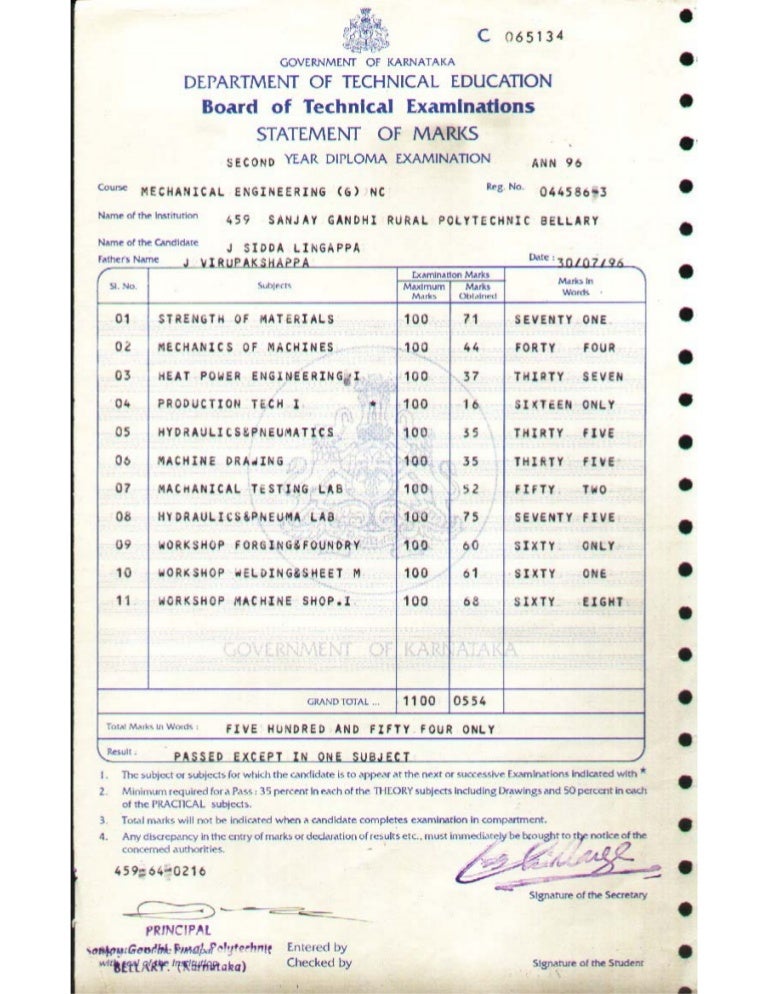 C 065134
GOVERNMENT OF KARNATAKA
DEPARTMENT OF TECHNICAL EDUCATION
Board of Technical Examinations
STATEMENT OF MARKS
SECOND YEAR DIPLOMA EXAMINATION ANN 96
Course MECHANICAL ENGINEERING (G) NC Reg. No. 044586-3
Name of the Institution 459 SANJAY GANDHI RURAL POLYTECHNIC BELLARY
Name of the Candidate J SIDDA LINGAPPA
Father's Name J VIRUPAKSHAPPA Date : 30/07/96
Sl. No. Subjects Examination Marks Maximum Marks Marks Obtained Marks in Words
01 STRENGTH OF MATERIALS 100 71 SEVENTY ONE
02 MECHANICS OF MACHINES 100 44 FORTY FOUR
03 HEAT POWER ENGINEERING I 100 37 THIRTY SEVEN
04 PRODUCTION TECH I * 100 16 SIXTEEN ONLY
05 HYDRAULICS&PNEUMATICS 100 35 THIRTY FIVE
06 MACHINE DRAWING 100 35 THIRTY FIVE
07 MACHANICAL TESTING LAB 100 52 FIFTY TWO
08 HYDRAULICS&PNEUMA LAB 100 75 SEVENTY FIVE
09 WORKSHOP FORGING&FOUNDRY 100 60 SIXTY ONLY
10 WORKSHOP WELDING&SHEET M 100 61 SIXTY ONE
11 WORKSHOP MACHINE SHOP.I 100 68 SIXTY EIGHT
GOVERNMENT OF KARNATAKA
GRAND TOTAL ... 1100 0554
Total Marks in Words : FIVE HUNDRED AND FIFTY FOUR ONLY
Result : PASSED EXCEPT IN ONE SUBJECT
1. The subject or subjects for which the candidate is to appear at the next or successive Examinations indicated with *
2. Minimum required for a Pass : 35 percent in each of the THEORY subjects including Drawings and 50 percent in each
of the PRACTICAL subjects.
3. Total marks will not be indicated when a candidate completes examination in compartment.
4. Any discrepancy in the entry of marks or declaration of results etc., must immediately be brought to the notice of the
concerned authorities.
459-64-0216
Signature of the Secretary
PRINCIPAL
Sanjay Gandhi Rural Polytechnic Entered by
BELLARY. (Karnataka) Checked by
Signature of the Student